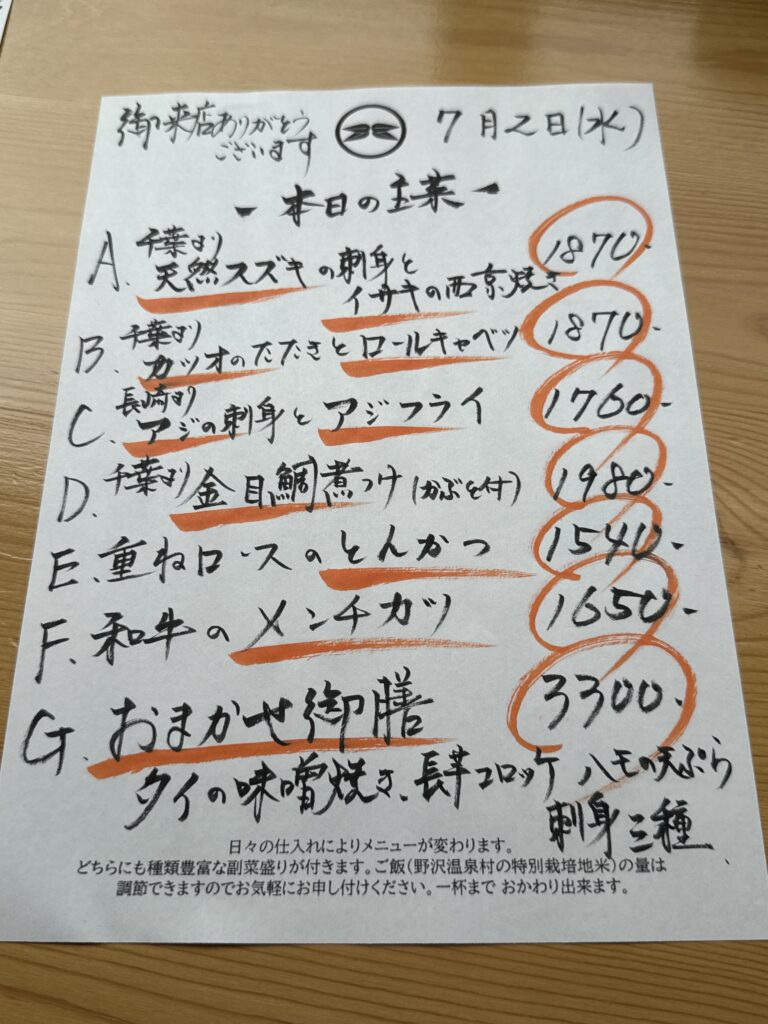 御来店ありがとう
ございます
7月2日(水)
- 本日の主菜 -
A. 千葉より
天然スズキの刺身と
イサキの西京焼き
1870-
B. 千葉より
カツオのたたきとロールキャベツ 1870-
C. 長崎より
アジの刺身とアジフライ 1760-
D. 千葉より 金目鯛煮つけ(かぶと付) 1980-
E. 重ねロースのとんかつ 1540-
F. 和牛のメンチカツ 1650-
G. おまかせ御膳 3300-
タイの味噌焼き、長芋コロッケ ハモの天ぷら
刺身三種
日々の仕入れによりメニューが変わります。
どちらにも種類豊富な副菜盛りが付きます。ご飯(野沢温泉村の特別栽培地米)の量は
調節できますのでお気軽にお申し付けください。一杯まで おかわり出来ます。